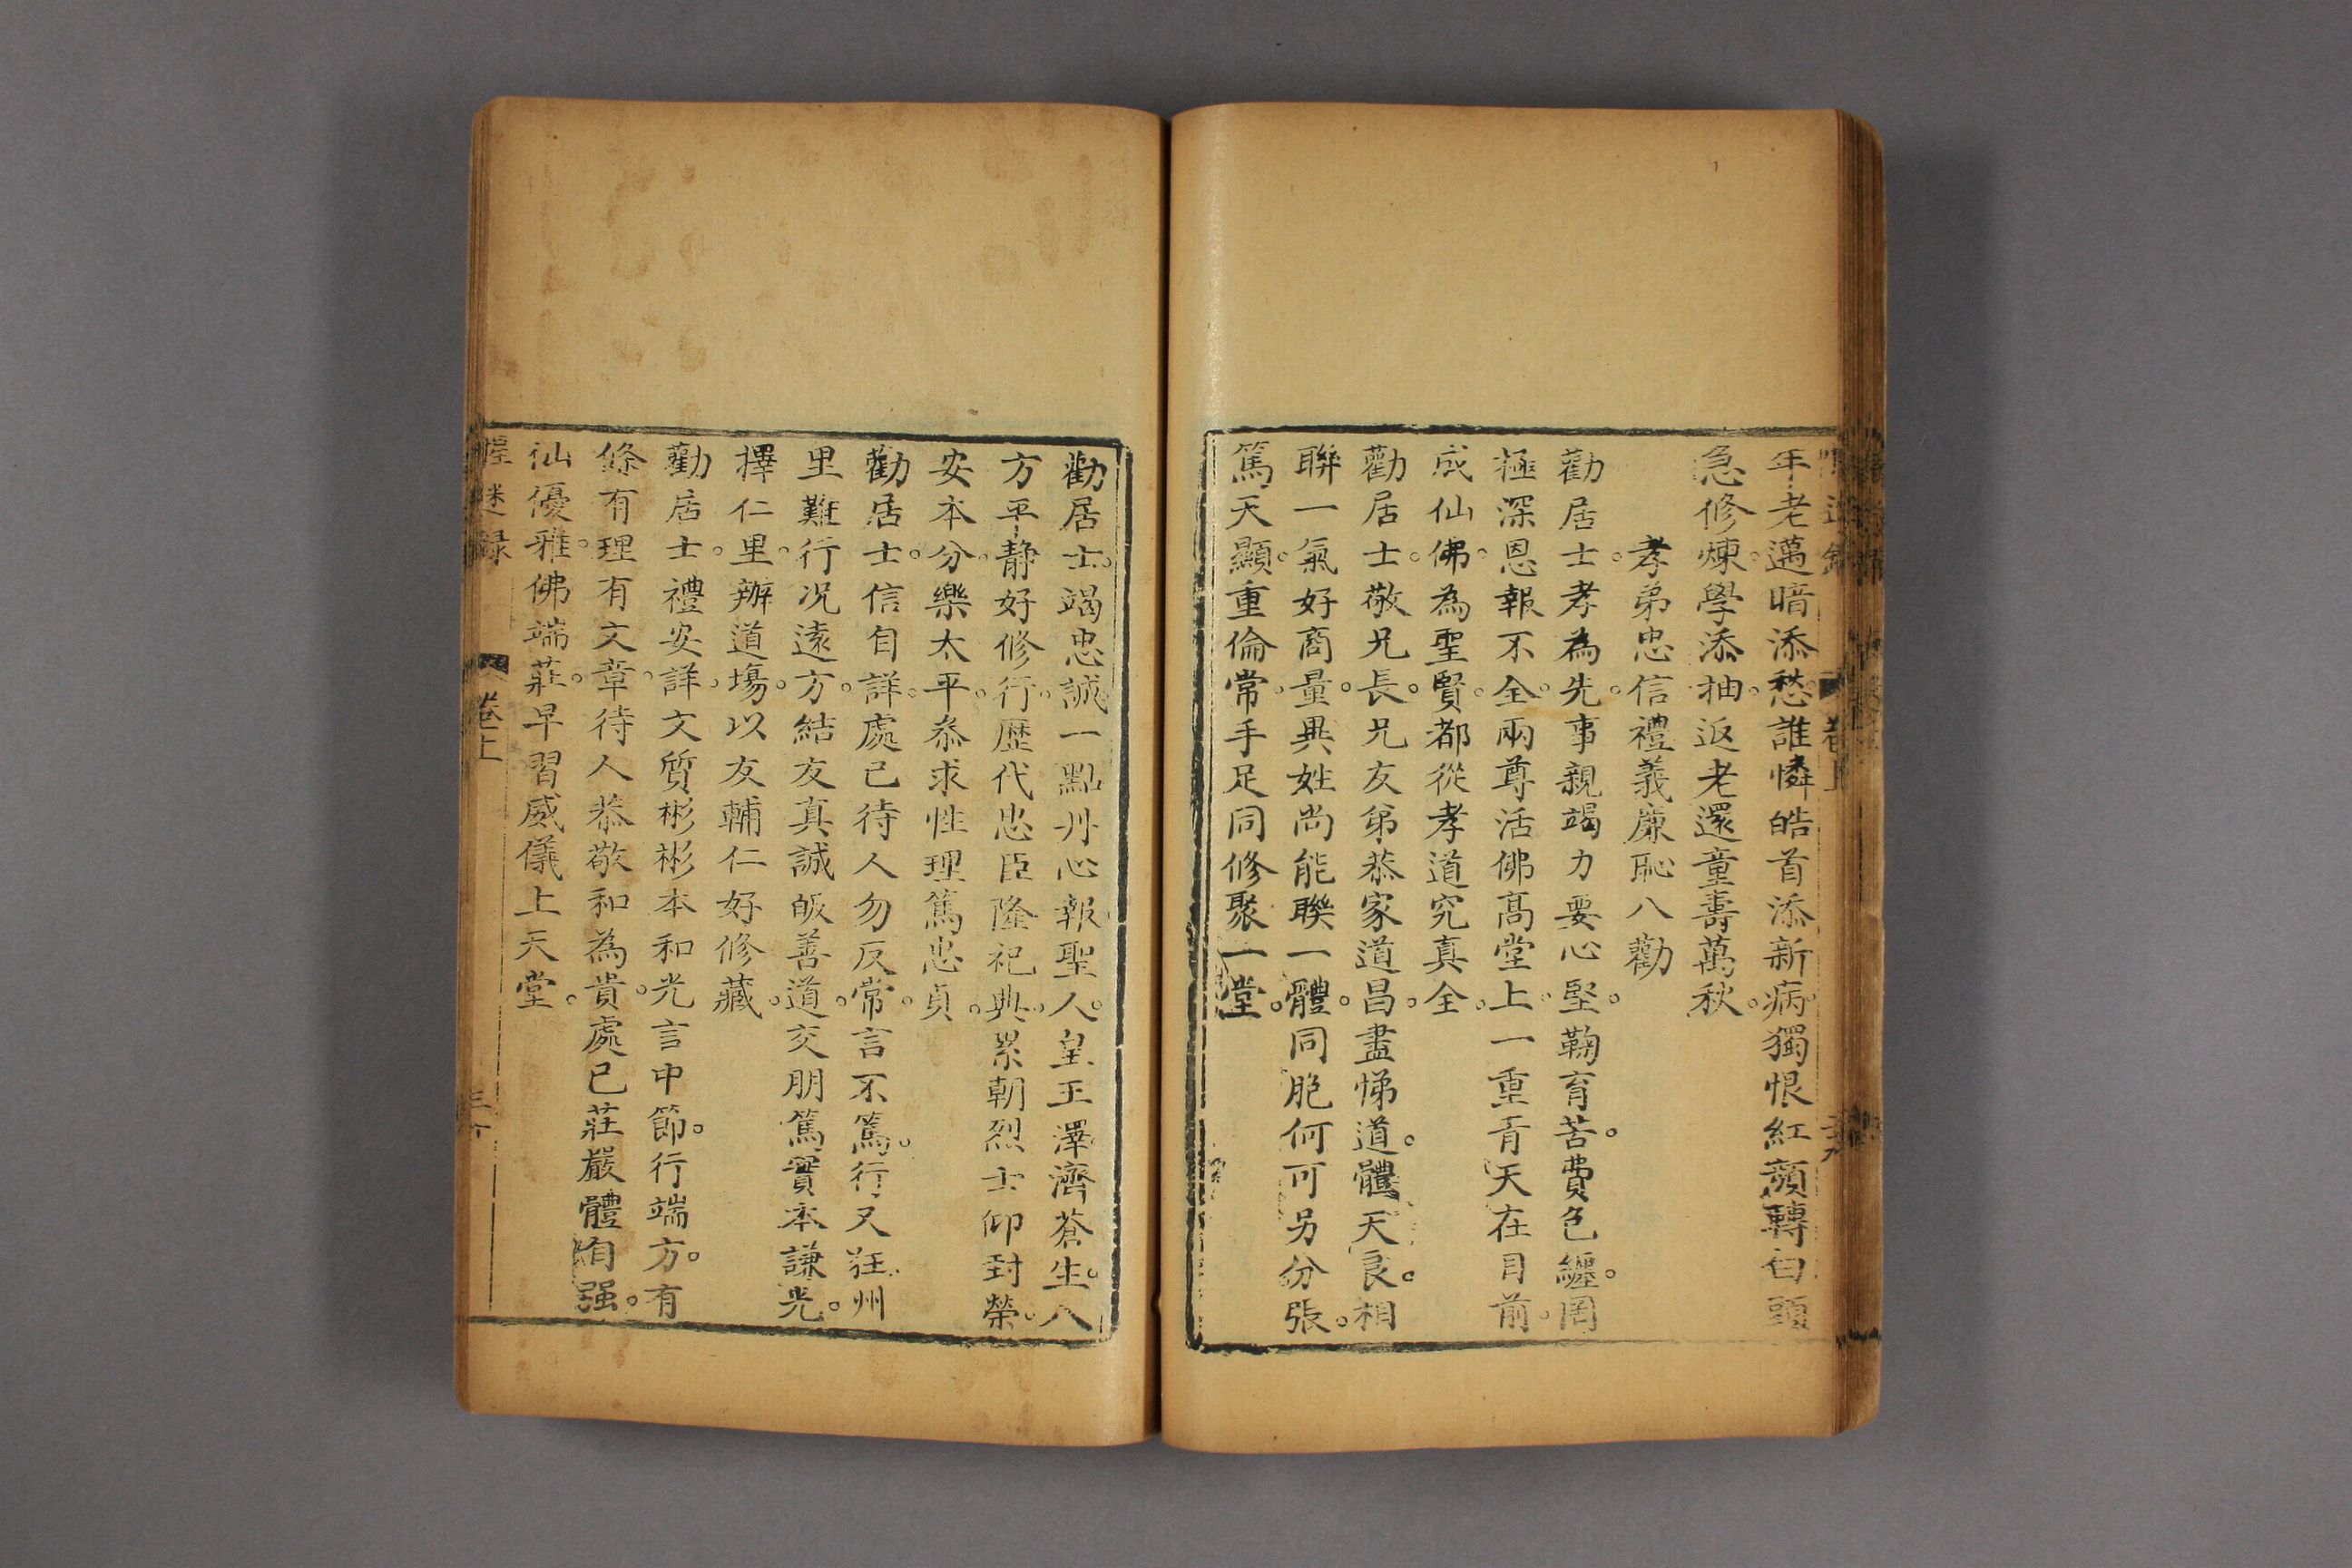 年老邁暗添愁。誰憐皓首添新病。獨恨紅顏轉白頭
急修煉。學添抽。返老還童壽萬秋。
孝弟忠信禮義廉恥八勸
勸居士。孝為先。事親竭力要心堅。鞠育苦。費色纏。罔
極深恩報不全。兩尊活佛高堂上。一重育天在目前。
成仙佛。為聖賢。都從孝道究真全。
勸居士。敬兄長。兄友弟恭家道昌。盡悌道。體天良。相
聯一氣好商量。異姓尚能聯一體。同胞何可另分張。
篤天顯。重倫常。手足同修聚一堂。
勸居士。竭忠誠。一點丹心報聖人。皇王澤濟蒼生。八
方平靜好修行。歷代忠臣隆祀典。累朝烈士仰封榮。
安本分。樂太平。恭求性理篤忠貞。
勸居士。信自詳。處己待人勿反常。言不篤。行又狂。州
里難行况遠方。結友真誠皈善道。交朋篤實本謙光。
擇仁里。辦道塲。以友輔仁好修藏。
勸居士。禮安詳。文質彬彬本和光。言中節。行端方。有
條有理有文章。待人恭敬和為貴。處己莊嚴體自强。
仙優雅。佛端莊。早習威儀上天堂。
醒迷録 卷上 三十